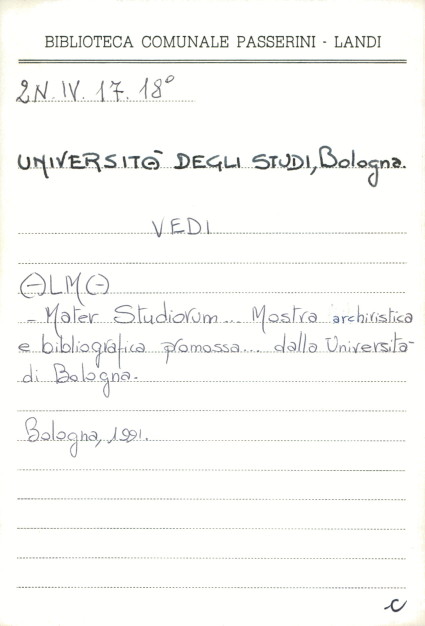 BIBLIOTECA COMUNALE PASSERINI - LANDI
2N.IV.17.18°
UNIVERSITà DEGLI STUDI, Bologna.
VEDI
ALMA
- Mater Studiorum... Mostra archivistica
e bibliografica promossa... dalla Università
di Bologna.
Bologna, 1991.
C